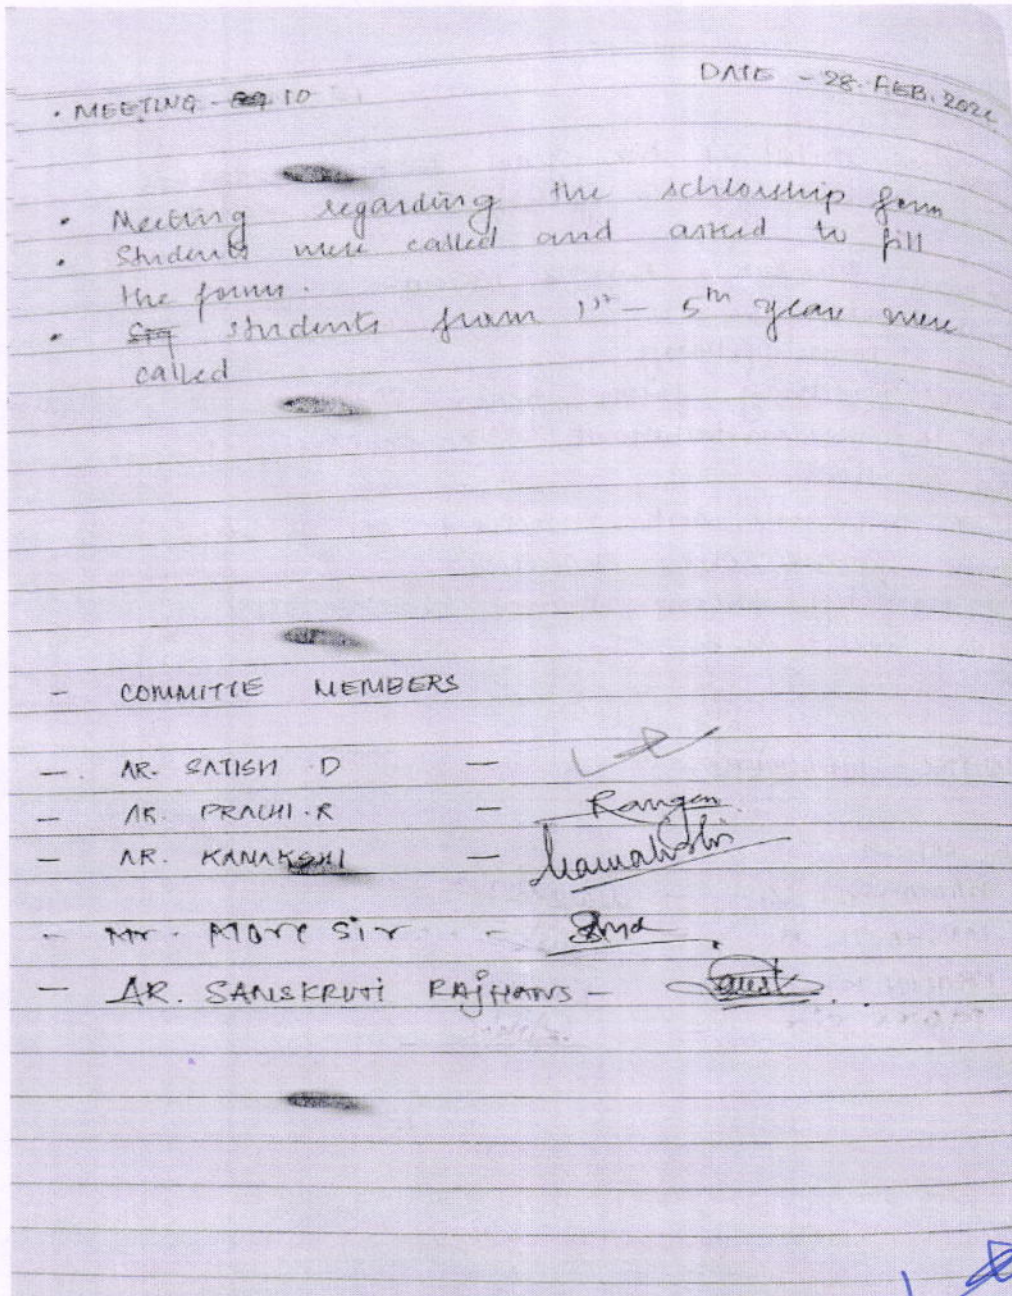 • MEETING - 10
DATE - 28. FEB. 202
• Meeting regarding the schlorship form
• Students were called and asked to fill
the forms.
• students from 1st - 5th year were
called
- COMMITTE MEMBERS
- AR. SATISH D -
- AR. PRACHI.R -
- AR. KAMAKSHI - Kamakshi
- Mr. More Sir -
- AR. SANSKRUTI RAJHANS -